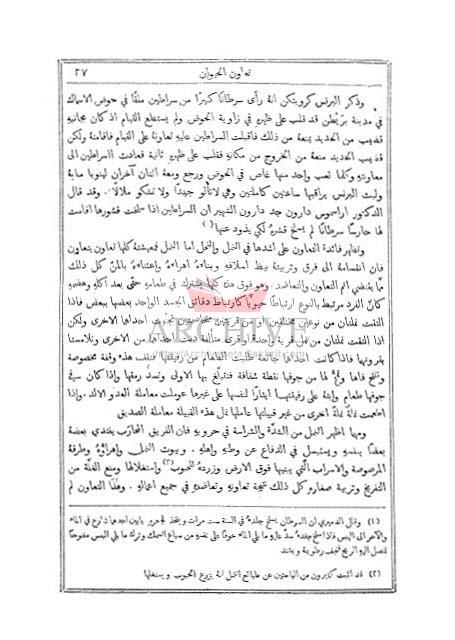 تعاون الحيوان ٢٧
وذكر البرنس كروبتكن انهُ رأى سرطانًا كبيرًا من سراطين ملقًا في حوض الاسماك
في مدينة بريطن قد قلب على ظهرهِ في زاوية الحوض ولم يستطع القيام اذ كان بجانبهِ
قضيب من الحديد يمنعهُ من ذلك فاقبلت السراطين عليهِ تعاونهُ على القيام فاقامتهُ ولكن
قضيب الحديد منعهُ من الخروج من مكانهِ فقلب على ظهرهِ ثانية فعادت السراطين الى
معاونتهِ وكلما تعب واحد منها غاص في الحوض ورجع ومعهُ اثنان آخران لينوبا منابهُ
ولبث البرنس يراقبها ساعتين كاملتين وهي لا تألو جهدًا ولا تشكو ملالًا. وقد قال
الدكتور اراسموس دارون جد دارون الشهير ان السراطين اذا سلخت قشورها اقامت
لها حارسًا سرطانًا لم يسلخ قشرهُ لكي يذود عنها(١)
وتظهر فائدة التعاون على اشدها في النمل والنحل اما النمل فمعيشتهُ كلها تعاون بتعاون
فان انقسامهُ الى فرق وتربيتهُ بيظ اسلافهِ وبناءهُ اهراءهُ واعتناءهُ بالمن كل ذلك
مما يقتضي اتم التعاون والتعاضد. وهو فوق هذا كلهِ يشترك في طعامهِ حتى بعد اكلهِ وهضمهِ
كأن الفرد مرتبط بالنوع ارتباطًا حيويًّا كارتباط دقائق الجسد الواحد بعضها ببعض فاذا
التقت نملتان من نوعين مختلفين او من قريتين متخاصمتين تجنبت احداهما الاخرى ولكن
اذا التقت نملتان من قرية واحدة او قرى متآلفة دنت احداهما من الاخرى وتلامستا
بقرونهما فاذا كانت احداهما جائعة طلبت الطعام من رفيقتها فتقف هذه وقفة مخصوصة
وتفتح فاها وتمجُّ لها من جوفها نقطة شفافة فتتبلغ بها الاولى وتسد رمقها واذا كان في
جوفها طعام وأبت على رفيقتها ايثارًا لنفسها على غيرها عوملت معاملة العدو الالد. واذا
اطعمت نملةٌ نملةً اخرى من غير قبيلتها عاملها نمل هذه القبيلة معاملة الصديق
ومهما اظهر النمل من الشدة والشراسة في حروبهِ فان الفريق المحارب يفتدي بعضهُ
بعضًا بنفسهِ ويستبسل في الدفاع عن وطنهِ واهلهِ. وبيوت النمل واهراؤُهُ وطرقهُ
المرصوصة والاسراب التي يبنيها فوق الارض وزرعهُ الحبوب(٢) واستغلالها ومنع الغلة من
التفريخ وتربية صغارهِ كل ذلك نتيجة تعاونهِ وتعاضدهِ في جميع اعمالهِ. وهذا التعاون لم
(١) وقال الدميري ان السرطان يسلخ جلدهُ في السنة ست مرات ويتخذ لجحرهِ بابين احدهما شارع في الماء
والآخر الى اليبس فاذا سلخ جلدهُ سد عليهِ ما يلي الماء خوفًا على نفسهِ من سباع السمك وترك ما يلي اليبس مفتوحًا
لتصل اليهِ الريح فتجف رطوبتهُ ويشتد
(٢) قد اثبت كثيرون من الباحثين عن طبائع النمل انهُ يزرع الحبوب ويستغلها
ARCHIVE